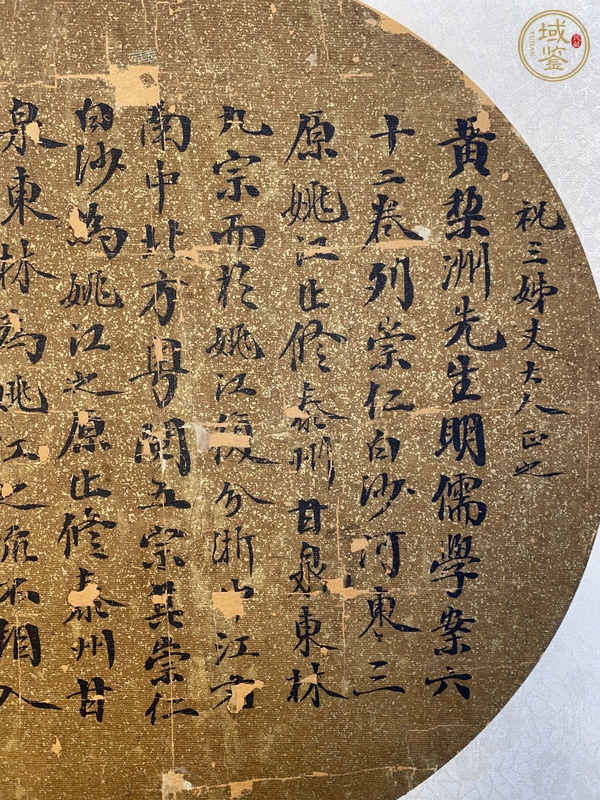 域鉴
祝三姊丈大人正之
黃棃洲先生明儒學案六
十二卷列崇仁白沙河東三
原姚江止修泰州甘泉東林
九宗而於姚江復分浙江右
南中北方粵閩五宗其崇仁
白沙為姚江之原止修泰州甘
泉東林為姚江之不相入